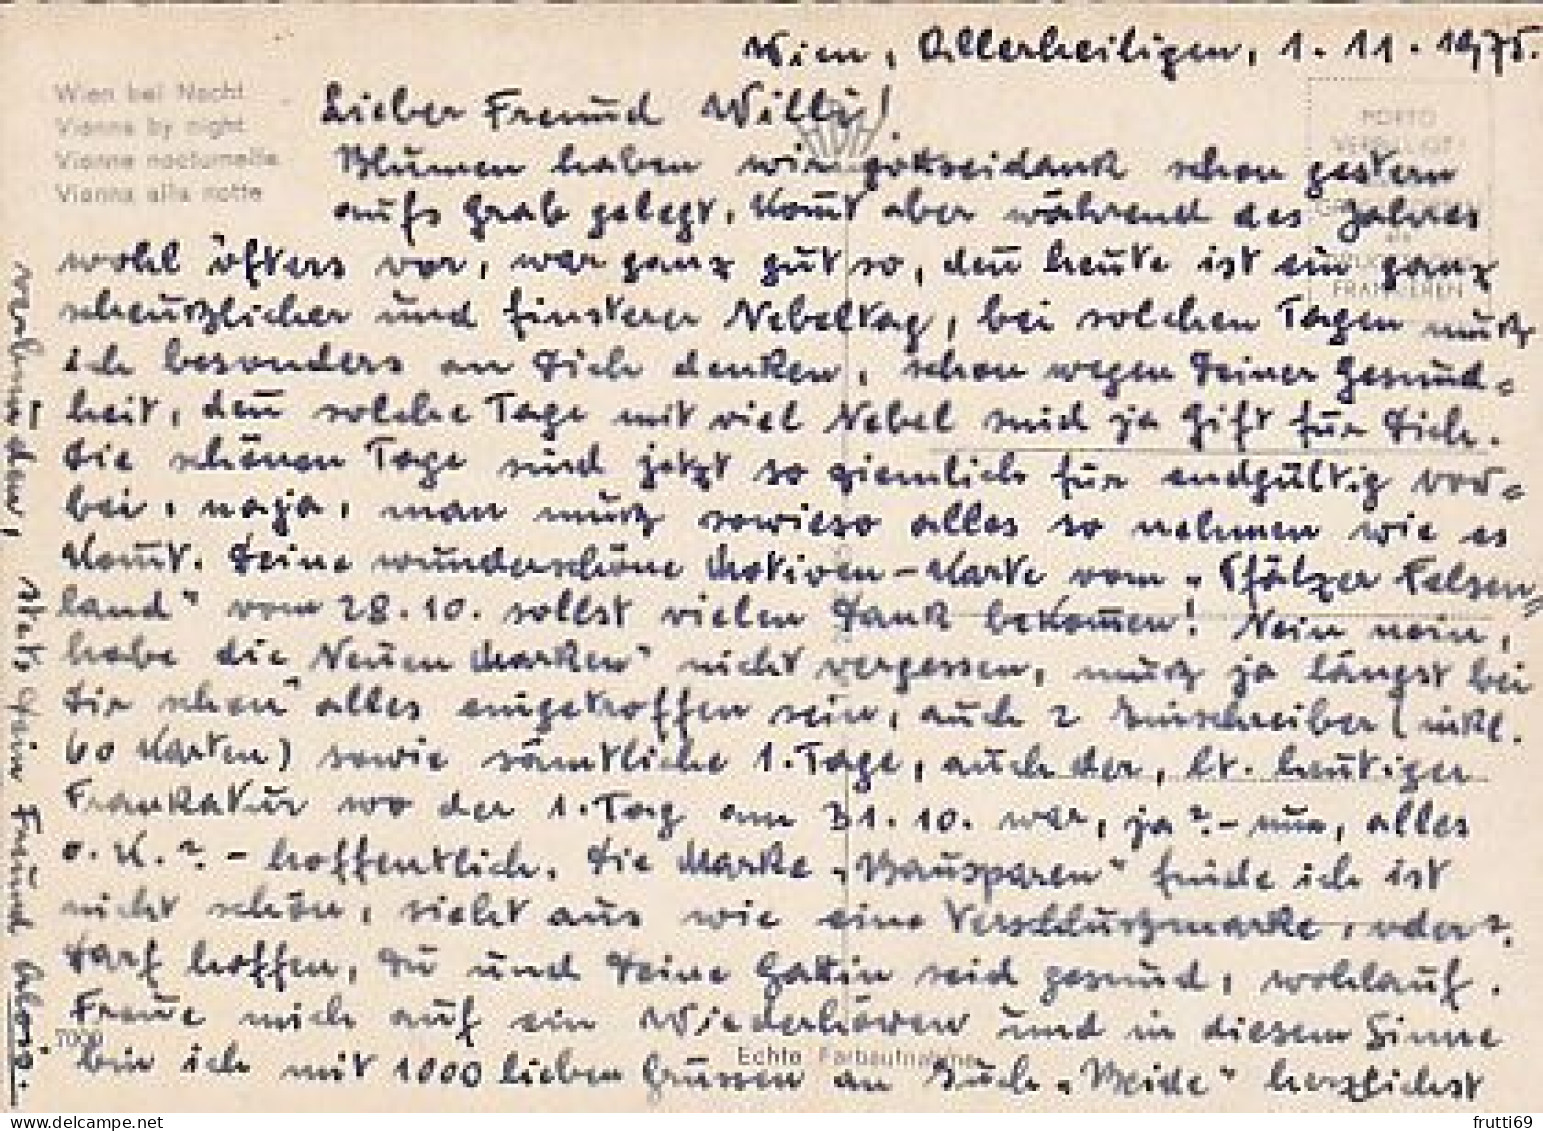 Wien, Allerheiligen, 1.11.1975.
Wien bei Nacht
Vienna by night
Vienne nocturne
Vienna alla notte
Lieber Freund Willi!
Blumen haben wir gottseidank schon gestern
aufs Grab gelegt, kom̅t aber während des Jahres
wohl öfters vor, war ganz gut so, den̅ heute ist ein ganz
scheußlicher und finsterer Nebeltag, bei solchen Tagen muß
ich besonders an Dich denken, schon wegen Deiner Gesund=
heit, den̅ solche Tage mit viel Nebel sind ja Gift für Dich.
Die schönen Tage sind jetzt so ziemlich für endgültig vor=
bei, naja, man muß sowieso alles so nehmen wie es
kom̅t. Deine wunderschöne Motiven-Karte vom „Pfälzer Felsen=
land" vom 28.10. sollst vielen Dank bekom̅en! Nein nein,
habe die „Neuen Marken" nicht vergessen, muß ja längst bei
Dir schon alles eingetroffen sein, auch 2 Einschreiber (inkl.
60 Karten) sowie sämtliche 1. Tage, auch der, lt. heutiger
Frankatur wo der 1. Tag am 31.10. war, ja? - nun, alles
o.K.? - hoffentlich. Die Marke „Bausparen" finde ich ist
nicht schön, sieht aus wie eine Verschlußmarke, oder?.
Darf hoffen, Du und Deine Gattin seid gesund, wohlauf.
Freue mich auf ein Wiederhören und in diesem Sinne
bin ich mit 1000 lieben Grüssen an Euch „Beide" herzlichst
verbunden, stets Dein Freund Alois.
PORTO
FRANKIEREN
Echte Farbaufnahme
frutti69